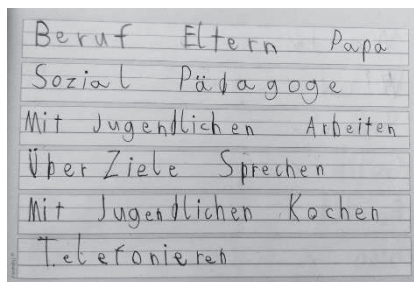 Beruf Eltern Papa
Sozial Pädagoge
Mit Jugendlichen Arbeiten
Über Ziele Sprechen
Mit Jugendlichen Kochen
Telefonieren